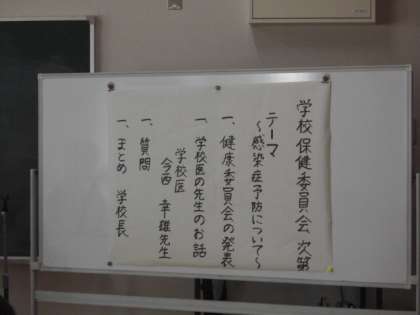 学校保健委員会 次第
テーマ
〜感染症予防について〜
一、健康委員会の発表
一、学校医の先生のお話
学校医
今西 幸雄先生
一、質問
一、まとめ 学校長